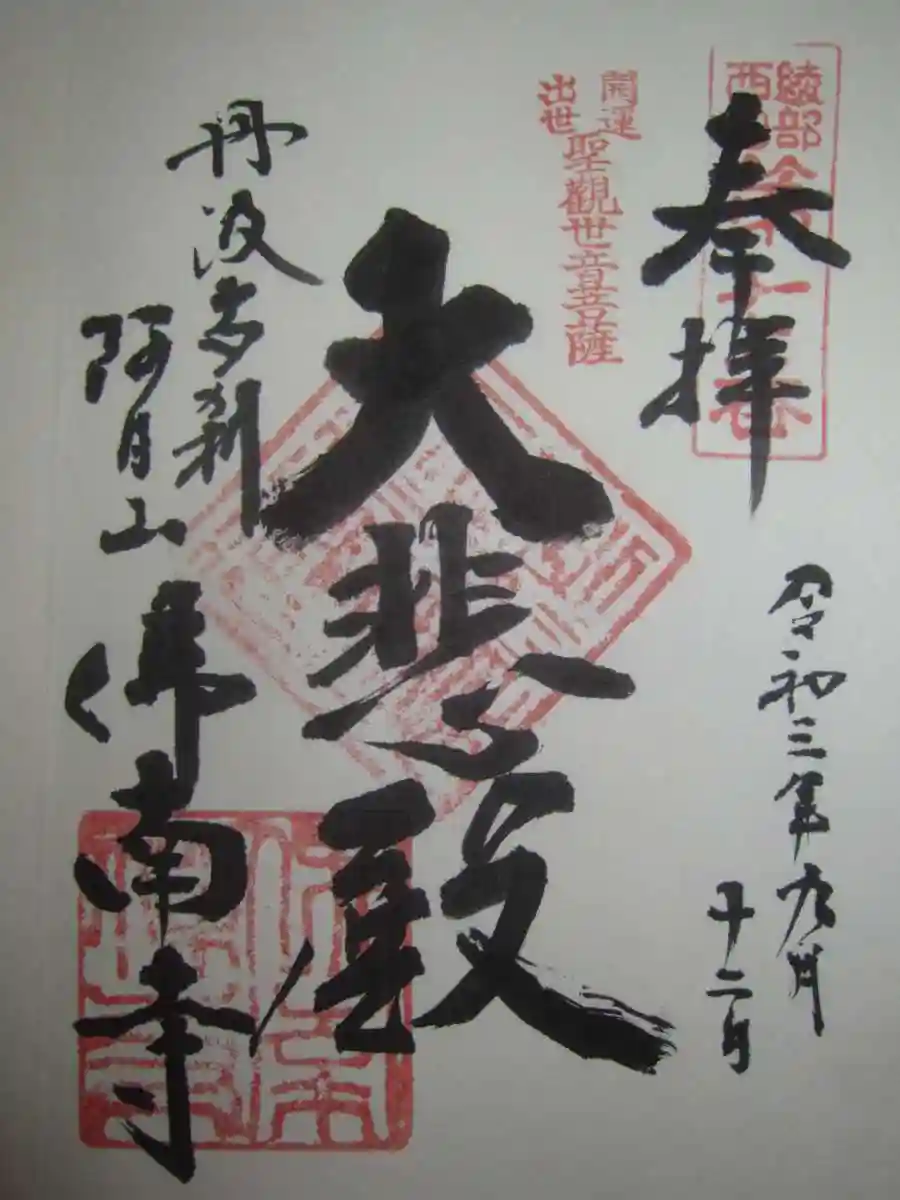 綾部
西国
奉拝
令和三年九月
十二日
開運
出世
聖觀世音菩薩
大悲殿
丹波古刹
阿月山
佛南寺